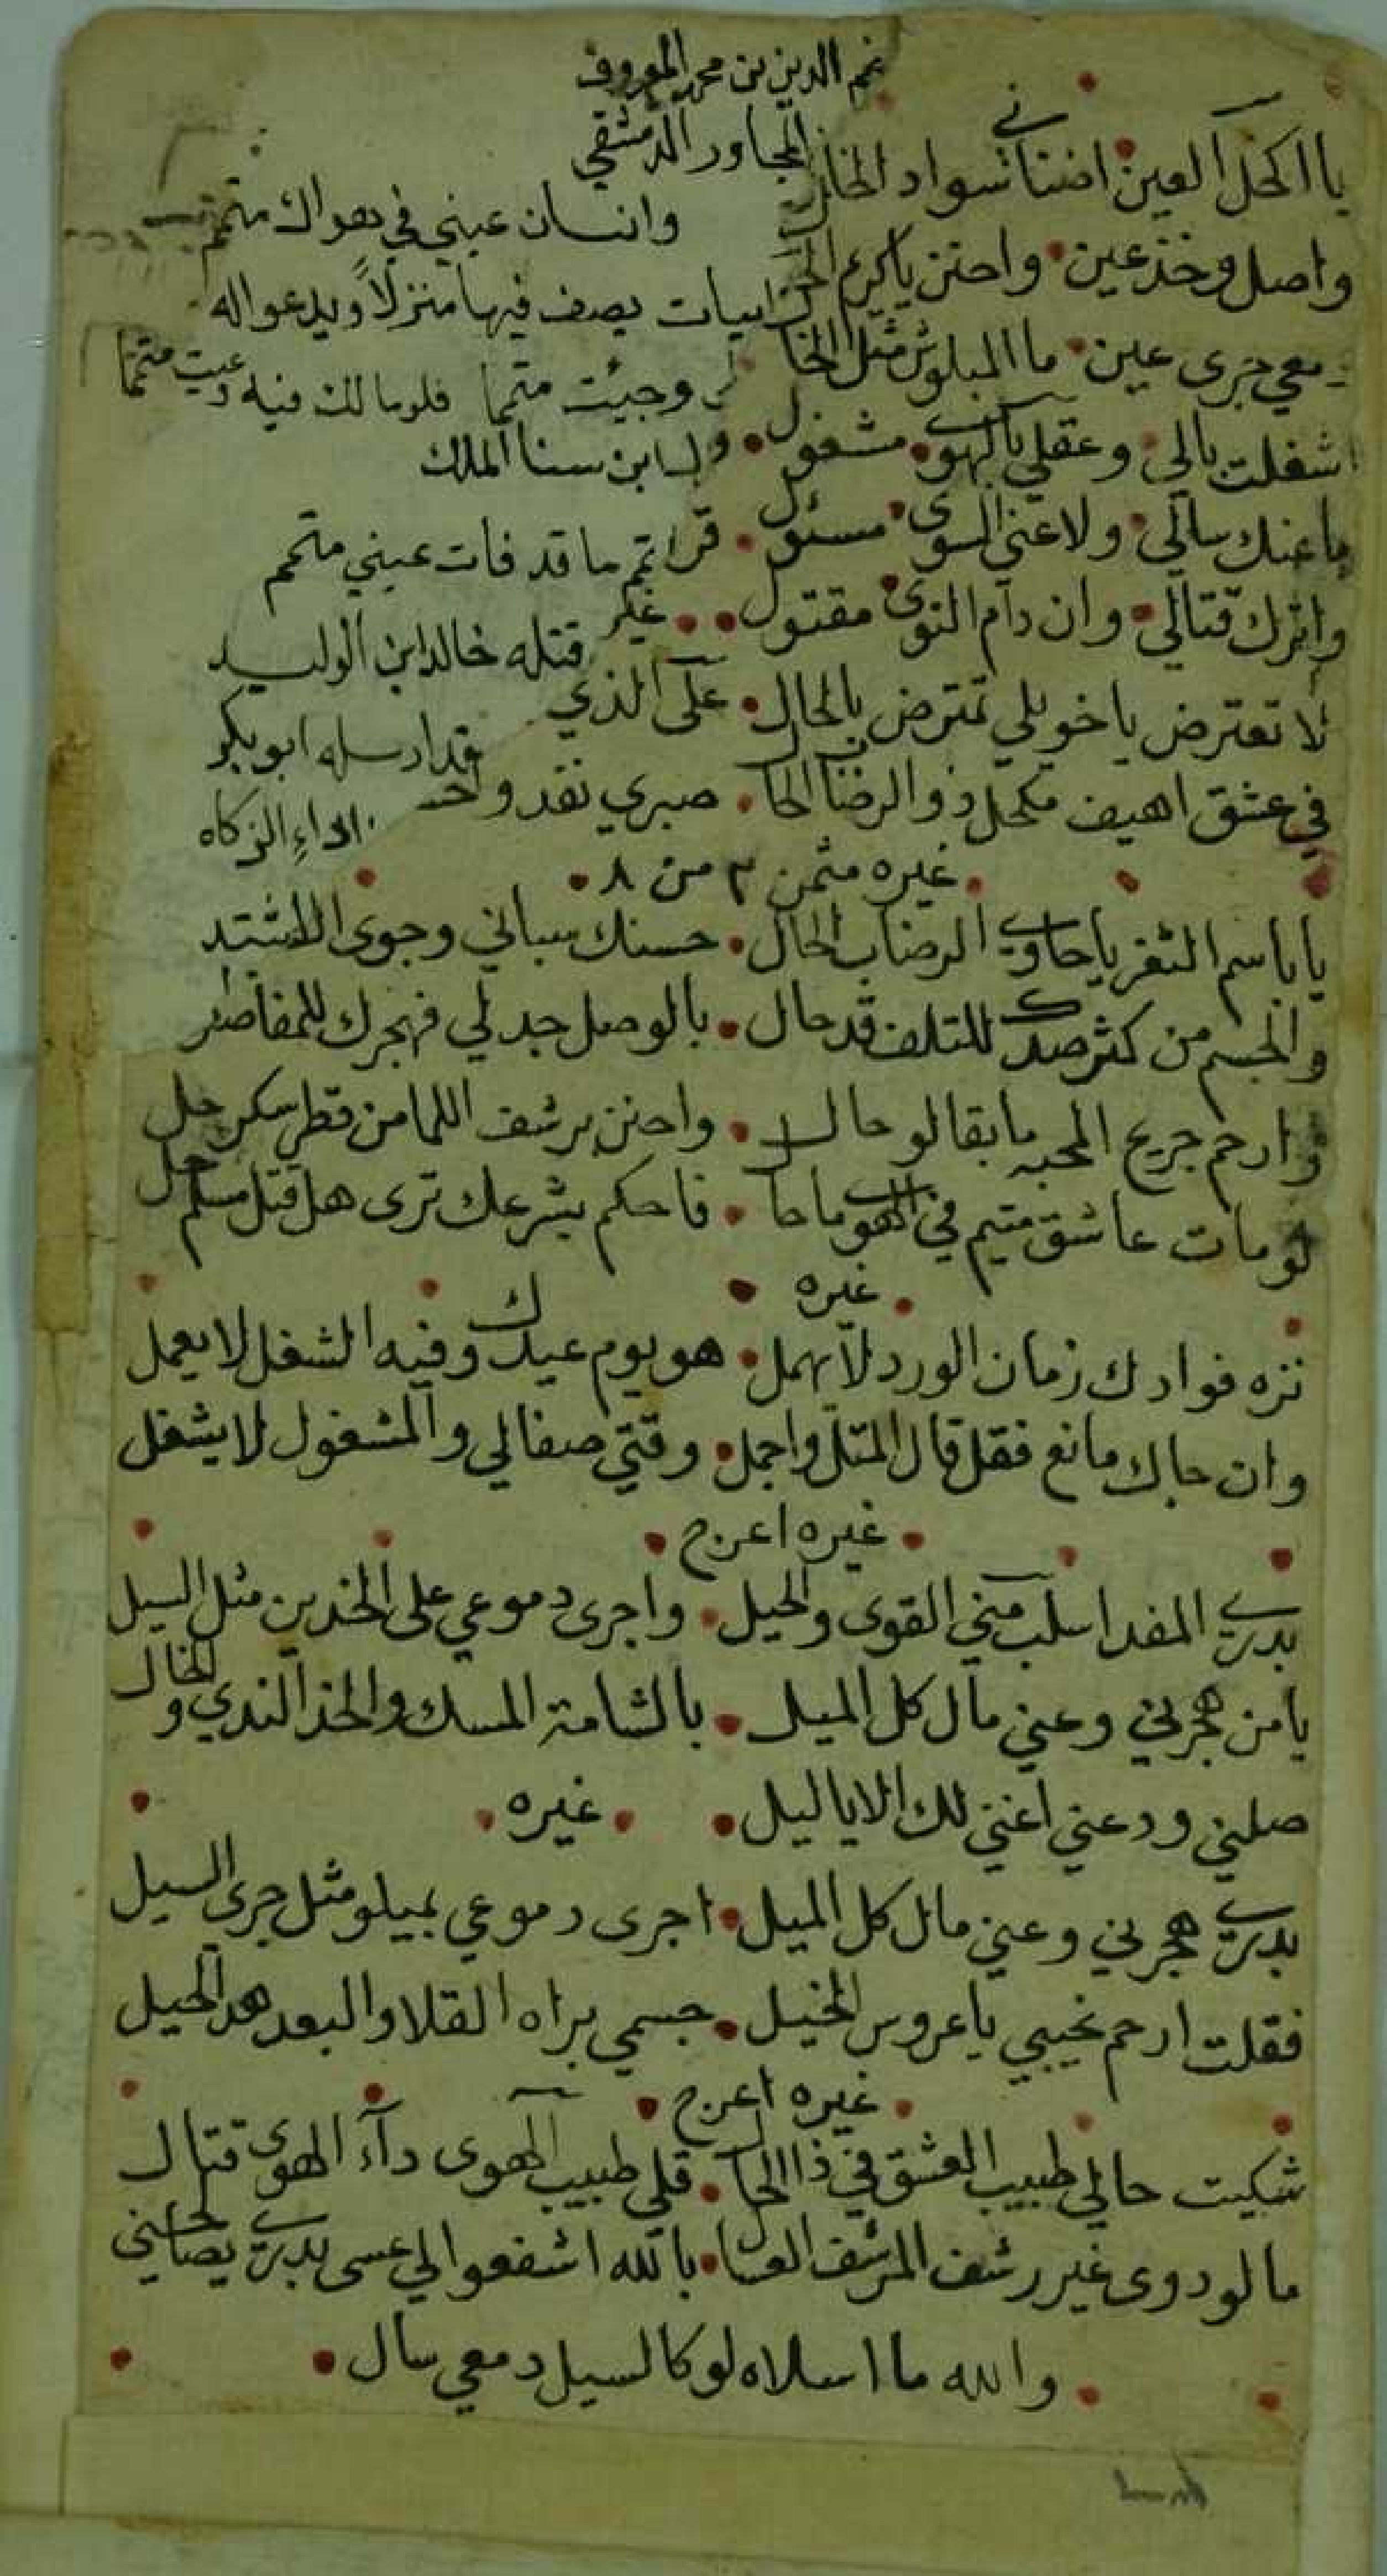 نجم الدين بن محمد المعروف
المجاور الدمشقي
يا اكحل العين اضناني سواد الخال
وانسان عيني في هواك متمم
واصل وخذ عين واحنن يا كريم
ابيات يصف فيها منزلاً ويدعو اله
معي جرى عين ما المبلوش مثل الخا
وجيئت متمما فلو مالك فيه متمما
اشغلت بالي وعقلي بالهوى مشغول
ابن سنا الملك
ما عنك سالي ولا عني السوى مسئول
قرا تم ما قد فات عيني متمم
واترك قتالي وان دام النوى مقتول غير
قتله خالد ابن الوليد
لا تعترض يا خويلي تمترض بالحال على الذي
قد ارسله ابو بكر
في عشق اهيف مكحل ذو الرضاب الحال صبري نفد و
اداءِ الزكاه
غيره مثمن ٢ من ٨
يا باسم الثغر يا حاوي الرضاب الحال حسنك سباني وجوى اللاشتد
والجسم من كثر صدك للتلف قد حال بالوصل جد لي فهجرك للمفاصل
وارحم جريح المحبه ما بقا لو حال واحنن برشف اللما من قطر سكر حل
لو مات عاشق متيم في الهوى ما حا فاحكم بشرعك ترى هل قتل مسلم حل
غيره
نزه فوادك زمان الورد لا تهمل هو يوم عيدك وفيه الشغل لا يعمل
وان جاك مانع فقل قال المتل واجمل وقتي صفالي والمشغول لا يشغل
غيره اعرج
بدري المفدا سلب مني القوى والحيل واجرى دموعي على الخدين مثل السيل
يا من هجرني وعني مال كل الميل بالشامة المسك والخد الندي والخال
صلني ودعني اغني لك الا يا ليل غيره
بدري هجرني وعني مال كل الميل اجرى دموعي بميلو مثل جرى السيل
فقلت ارحم نحيبي يا عروس الخيل جسمي براه القلا والبعد هد الحيل
غيره اعرج
شكيت حالي طبيب العشق في ذا الحال قلي طبيب الهوى دآء الهوى قتال
ما لو دوى غير رشف المرشف العسال بالله اشفعوا لي عسى بدري يصالحني
والله ما اسلاه لو كالسيل دمعي سال